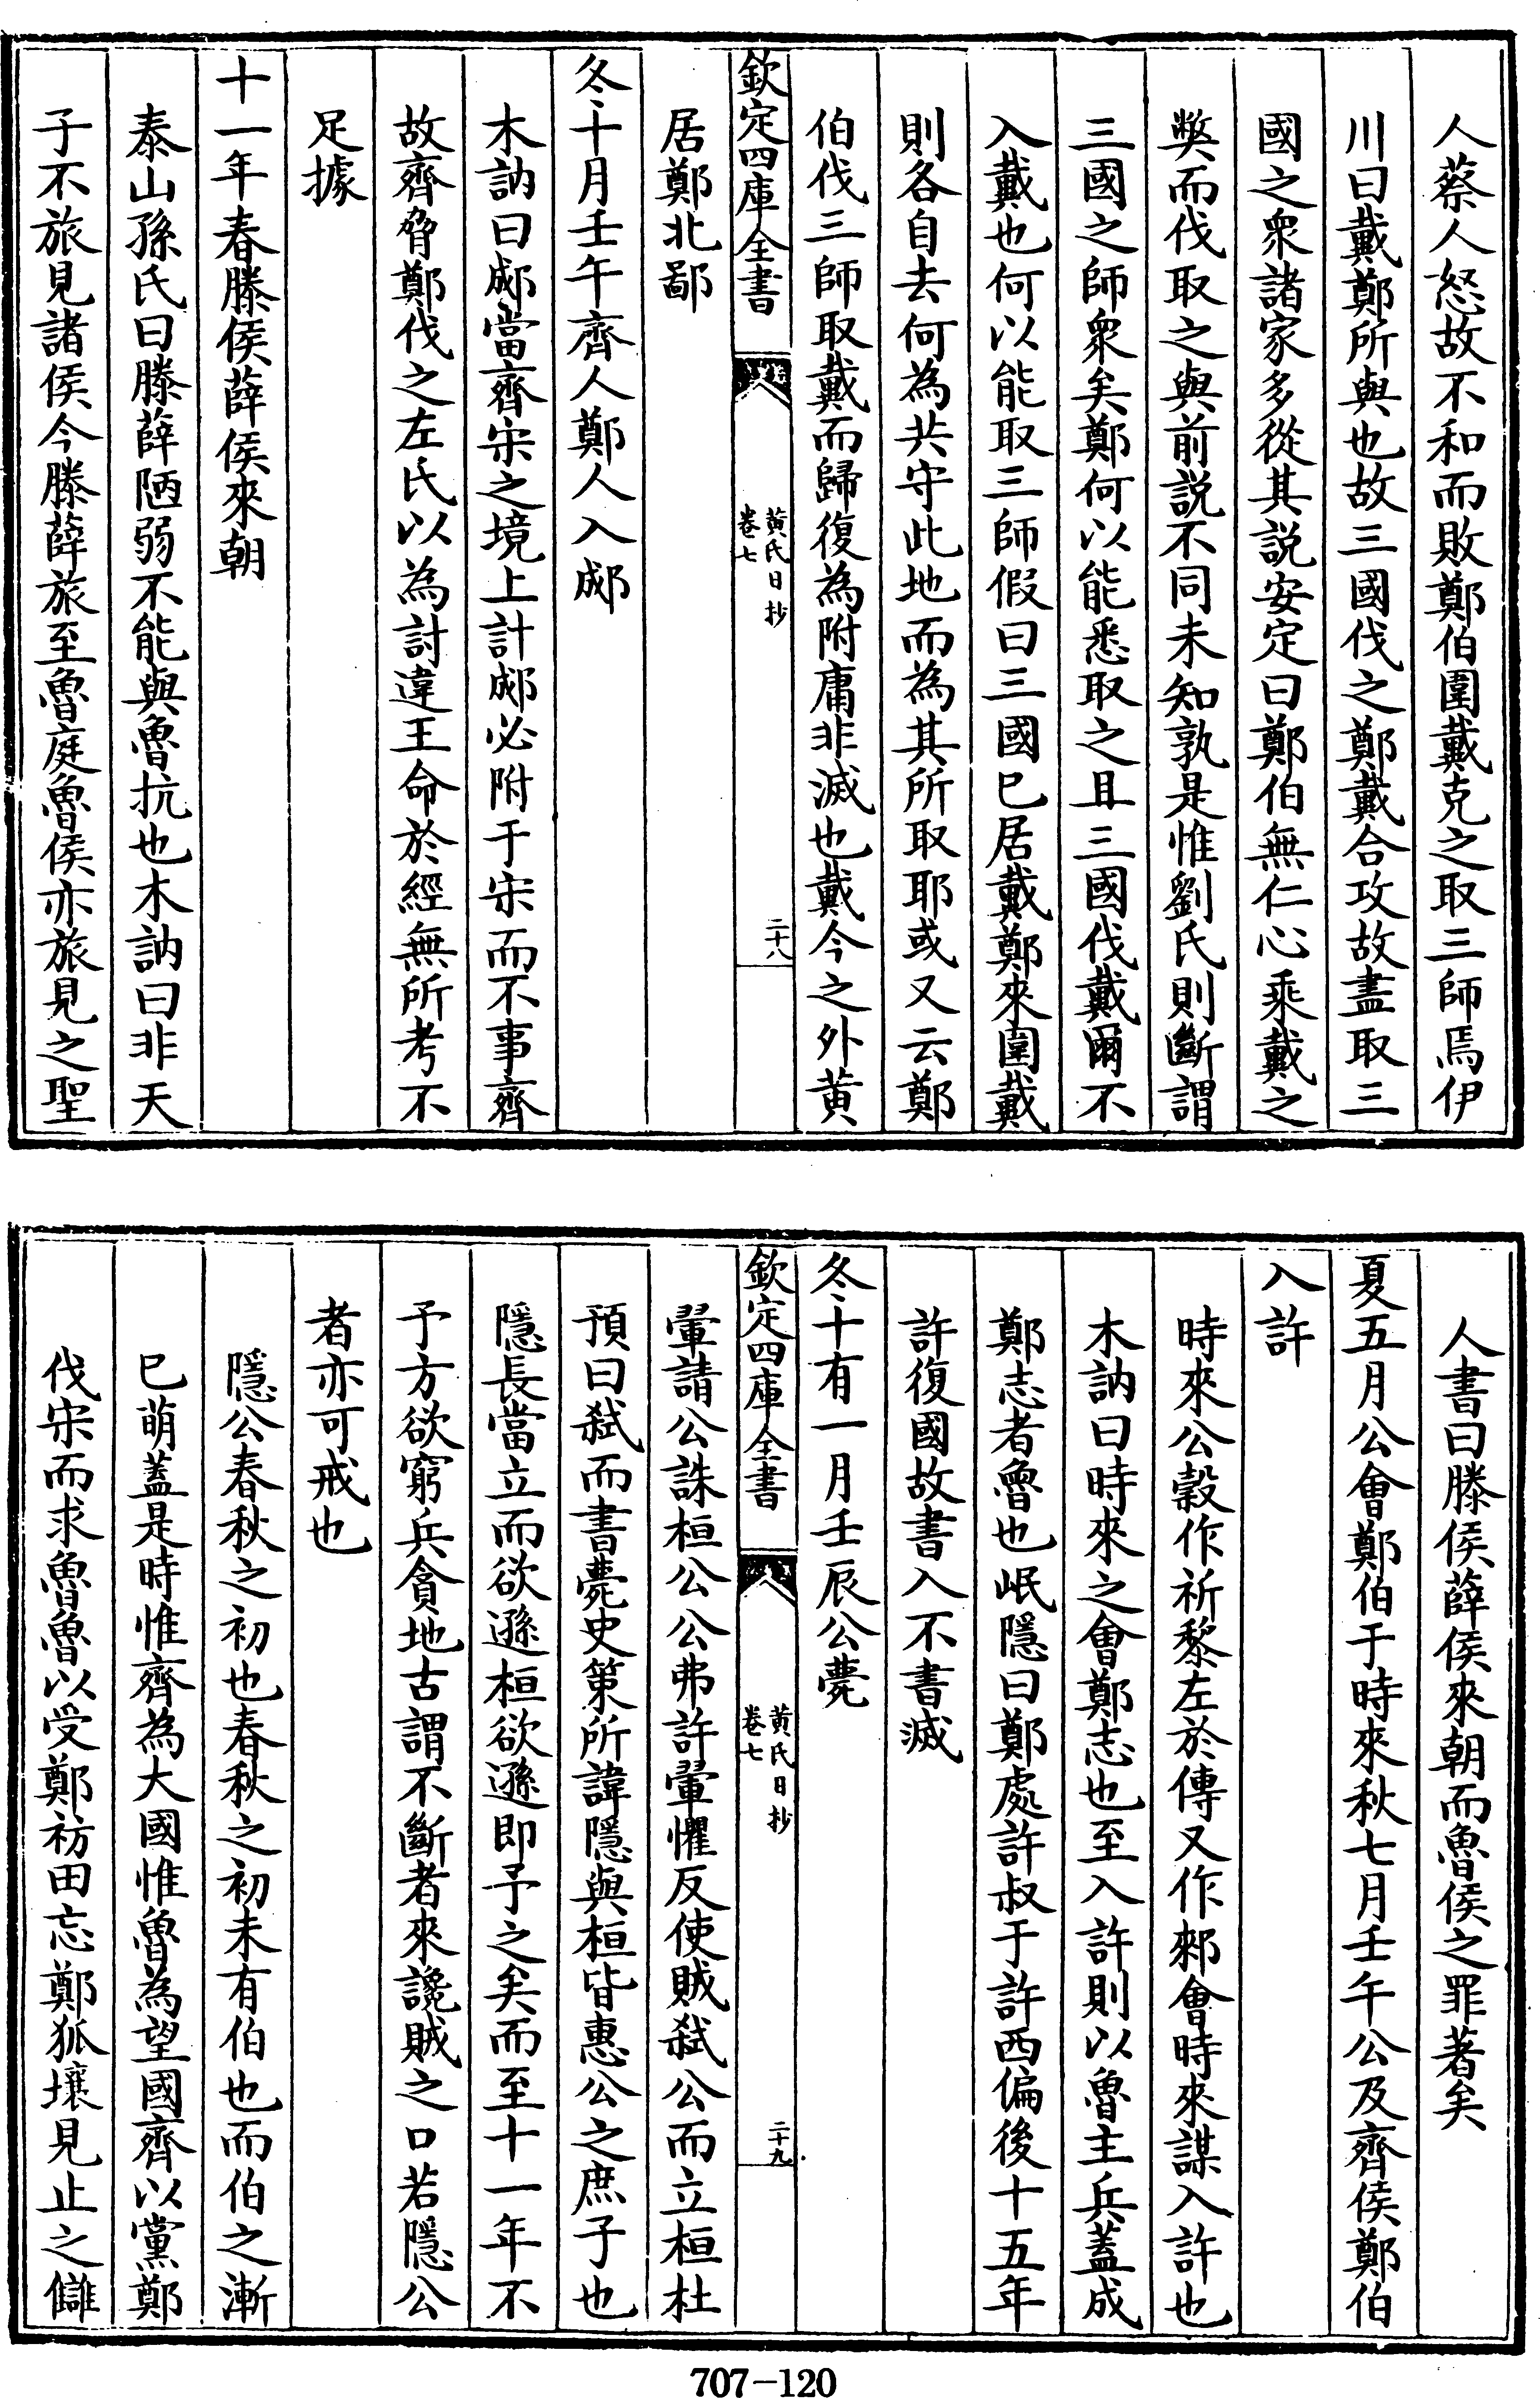 人蔡人怒故不和而敗鄭伯圍戴克之取三師焉伊
川曰戴鄭所與也故三國伐之鄭戴合攻故盡取三
國之衆諸家多從其説安定曰鄭伯無仁心乘戴之
獘而伐取之與前説不同未知孰是惟劉氏則斷謂
三國之師衆矣鄭何以能悉取之且三國伐戴爾不
入戴也何以能取三師假曰三國已居戴鄭來圍戴
則各自去何為共守此地而為其所取耶或又云鄭
伯伐三師取戴而歸復為附庸非滅也戴今之外黄
欽定四庫全書
黄氏日抄
卷七
二十八
居鄭北鄙
冬十月壬午齊人鄭人入郕
木訥曰郕當齊宋之境上計郕必附于宋而不事齊
故齊脅鄭伐之左氏以為討違王命於經無所考不
足據
十一年春滕侯薛侯來朝
泰山孫氏曰滕薛陋弱不能與魯抗也木訥曰非天
子不旅見諸侯今滕薛旅至魯庭魯侯亦旅見之聖
人書曰滕侯薛侯來朝而魯侯之罪著矣
夏五月公會鄭伯于時來秋七月壬午公及齊侯鄭伯
入許
時來公穀作祈黎左於傳又作郲會時來謀入許也
木訥曰時來之會鄭志也至入許則以魯主兵蓋成
鄭志者魯也岷隱曰鄭處許叔于許西偏後十五年
許復國故書入不書滅
冬十有一月壬辰公薨
欽定四庫全書
黄氏日抄
卷七
二十九
翬請公誅桓公公弗許翬懼反使賊弑公而立桓杜
預曰弑而書薨史策所諱隱與桓皆惠公之庶子也
隱長當立而欲遜桓欲遜即予之矣而至十一年不
予方欲窮兵貪地古謂不斷者來讒賊之口若隱公
者亦可戒也
隱公春秋之初也春秋之初未有伯也而伯之漸
已萌蓋是時惟齊為大國惟魯為望國齊以黨鄭
伐宋而求魯魯以受鄭祊田忘鄭狐壤見止之讎
707-120